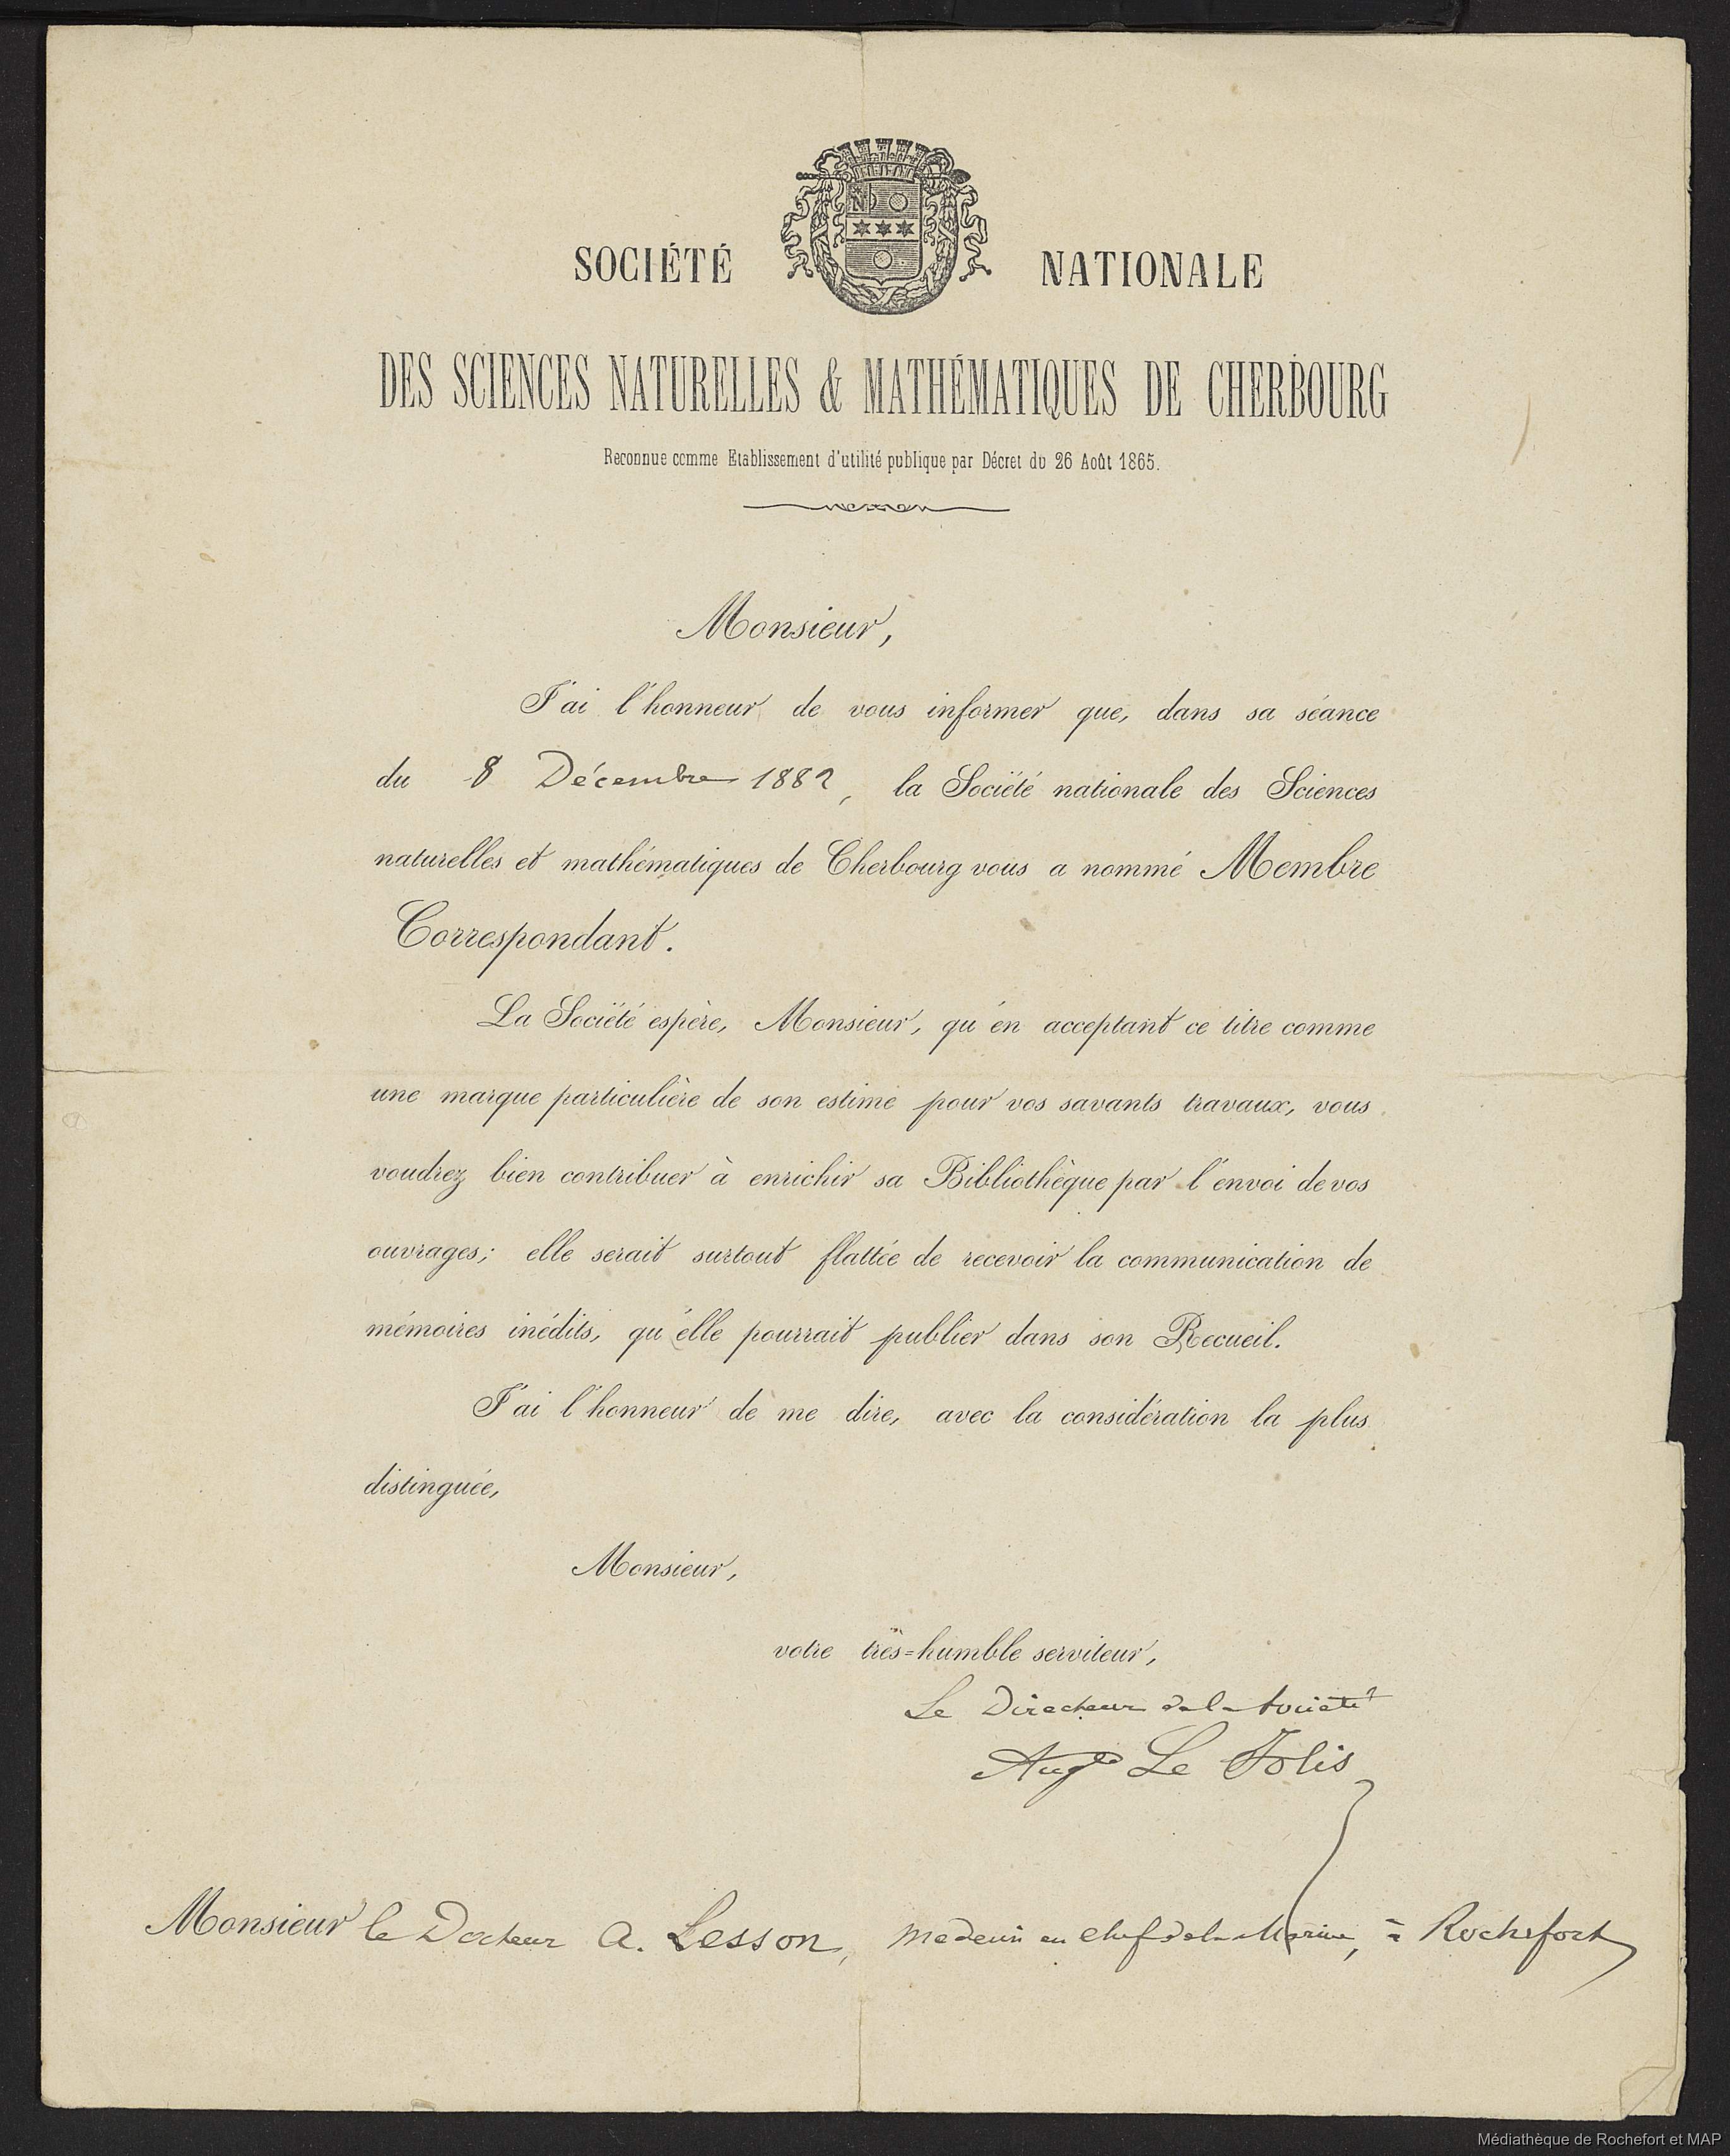 SOCIÉTÉ NATIONALE
DES SCIENCES NATURELLES & MATHÉMATIQUES DE CHERBOURG
Reconnue comme Etablissement d'utilité publique par Décret du 26 Août 1865.
Monsieur,
J'ai l'honneur de vous informer que, dans sa séance
du 8 Décembre 1882, la Société nationale des Sciences
naturelles et mathématiques de Cherbourg vous a nommé Membre
Correspondant.
La Société espère, Monsieur, qu'en acceptant ce titre comme
une marque particulière de son estime pour vos savants travaux, vous
voudrez bien contribuer à enrichir sa Bibliothèque par l'envoi de vos
ouvrages; elle serait surtout flattée de recevoir la communication de
mémoires inédits, qu'elle pourrait publier dans son Recueil.
J'ai l'honneur de me dire, avec la considération la plus
distinguée,
Monsieur,
votre très=humble serviteur,
Le Directeur de la Société
Aug^te Le Jolis
Monsieur le Docteur A. Lesson, medecin en chef de la Marine, à Rochefort
Médiathèque de Rochefort et MAP